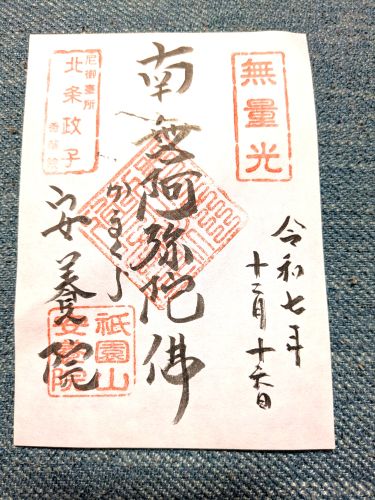 無量光
令和七年
十二月十六日
南無阿弥陀佛
かまくら
尼御臺所
北条政子
安養院
祇園山
安養院